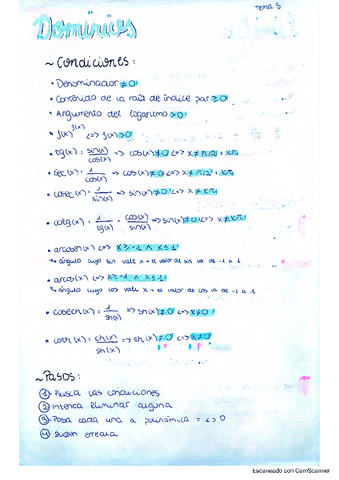 Tema 3
Dominios
~ Condiciones:
• Denominador ≠ 0!
• Contenido de la raíz de índice par ≥ 0!
• Argumento del logaritmo > 0!
• f(x)^f(x) <=> f(x) > 0!
• tg(x) = sin(x)/cos(x) => cos(x) ≠ 0! <=> x ≠ π/2 + kπ
• sec(x) = 1/cos(x) => cos(x) ≠ 0 <=> x ≠ π/2 + kπ
• cosec(x) = 1/sin(x) => sin(x) ≠ 0! <=> x ≠ kπ
• cotg(x) = 1/tg(x) = cos(x)/sin(x) => sin(x) ≠ 0! <=> x ≠ kπ!
• arcosen(x) <=> x ≥ -1 ∧ x ≤ 1
↳ ángulo cuyo sin vale x → el valor de sin va de -1 a 1
• arcos(x) <=> x ≥ -1 ∧ x ≤ 1!
↳ ángulo cuyo cos vale x → el valor de cos va de -1 a 1
• cosech(x) = 1/sh(x) => sh(x) ≠ 0! <=> x ≠ 0!
• coth(x) = ch(x)/sh(x) => sh(x) ≠ 0! <=> x ≠ 0!
~ Pasos:
① Busca las condiciones
② Intenta eliminar alguna
③ Pasa cada una a polinómica = <> 0
④
Escaneado con CamScanner